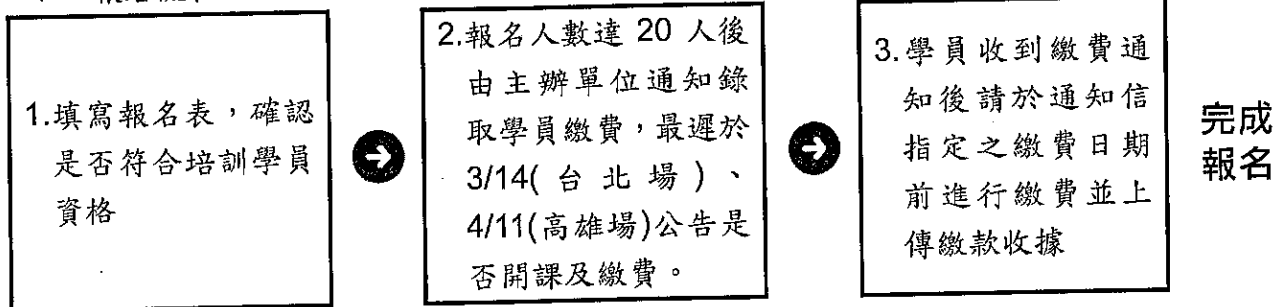 1.填寫報名表，確認
是否符合培訓學員
資格
2.報名人數達 20 人後
由主辦單位通知錄
取學員繳費，最遲於
3/14(台北場)、
4/11(高雄場)公告是
否開課及繳費。
3.學員收到繳費通
知後請於通知信
指定之繳費日期
前進行繳費並上
傳繳款收據
完成
報名